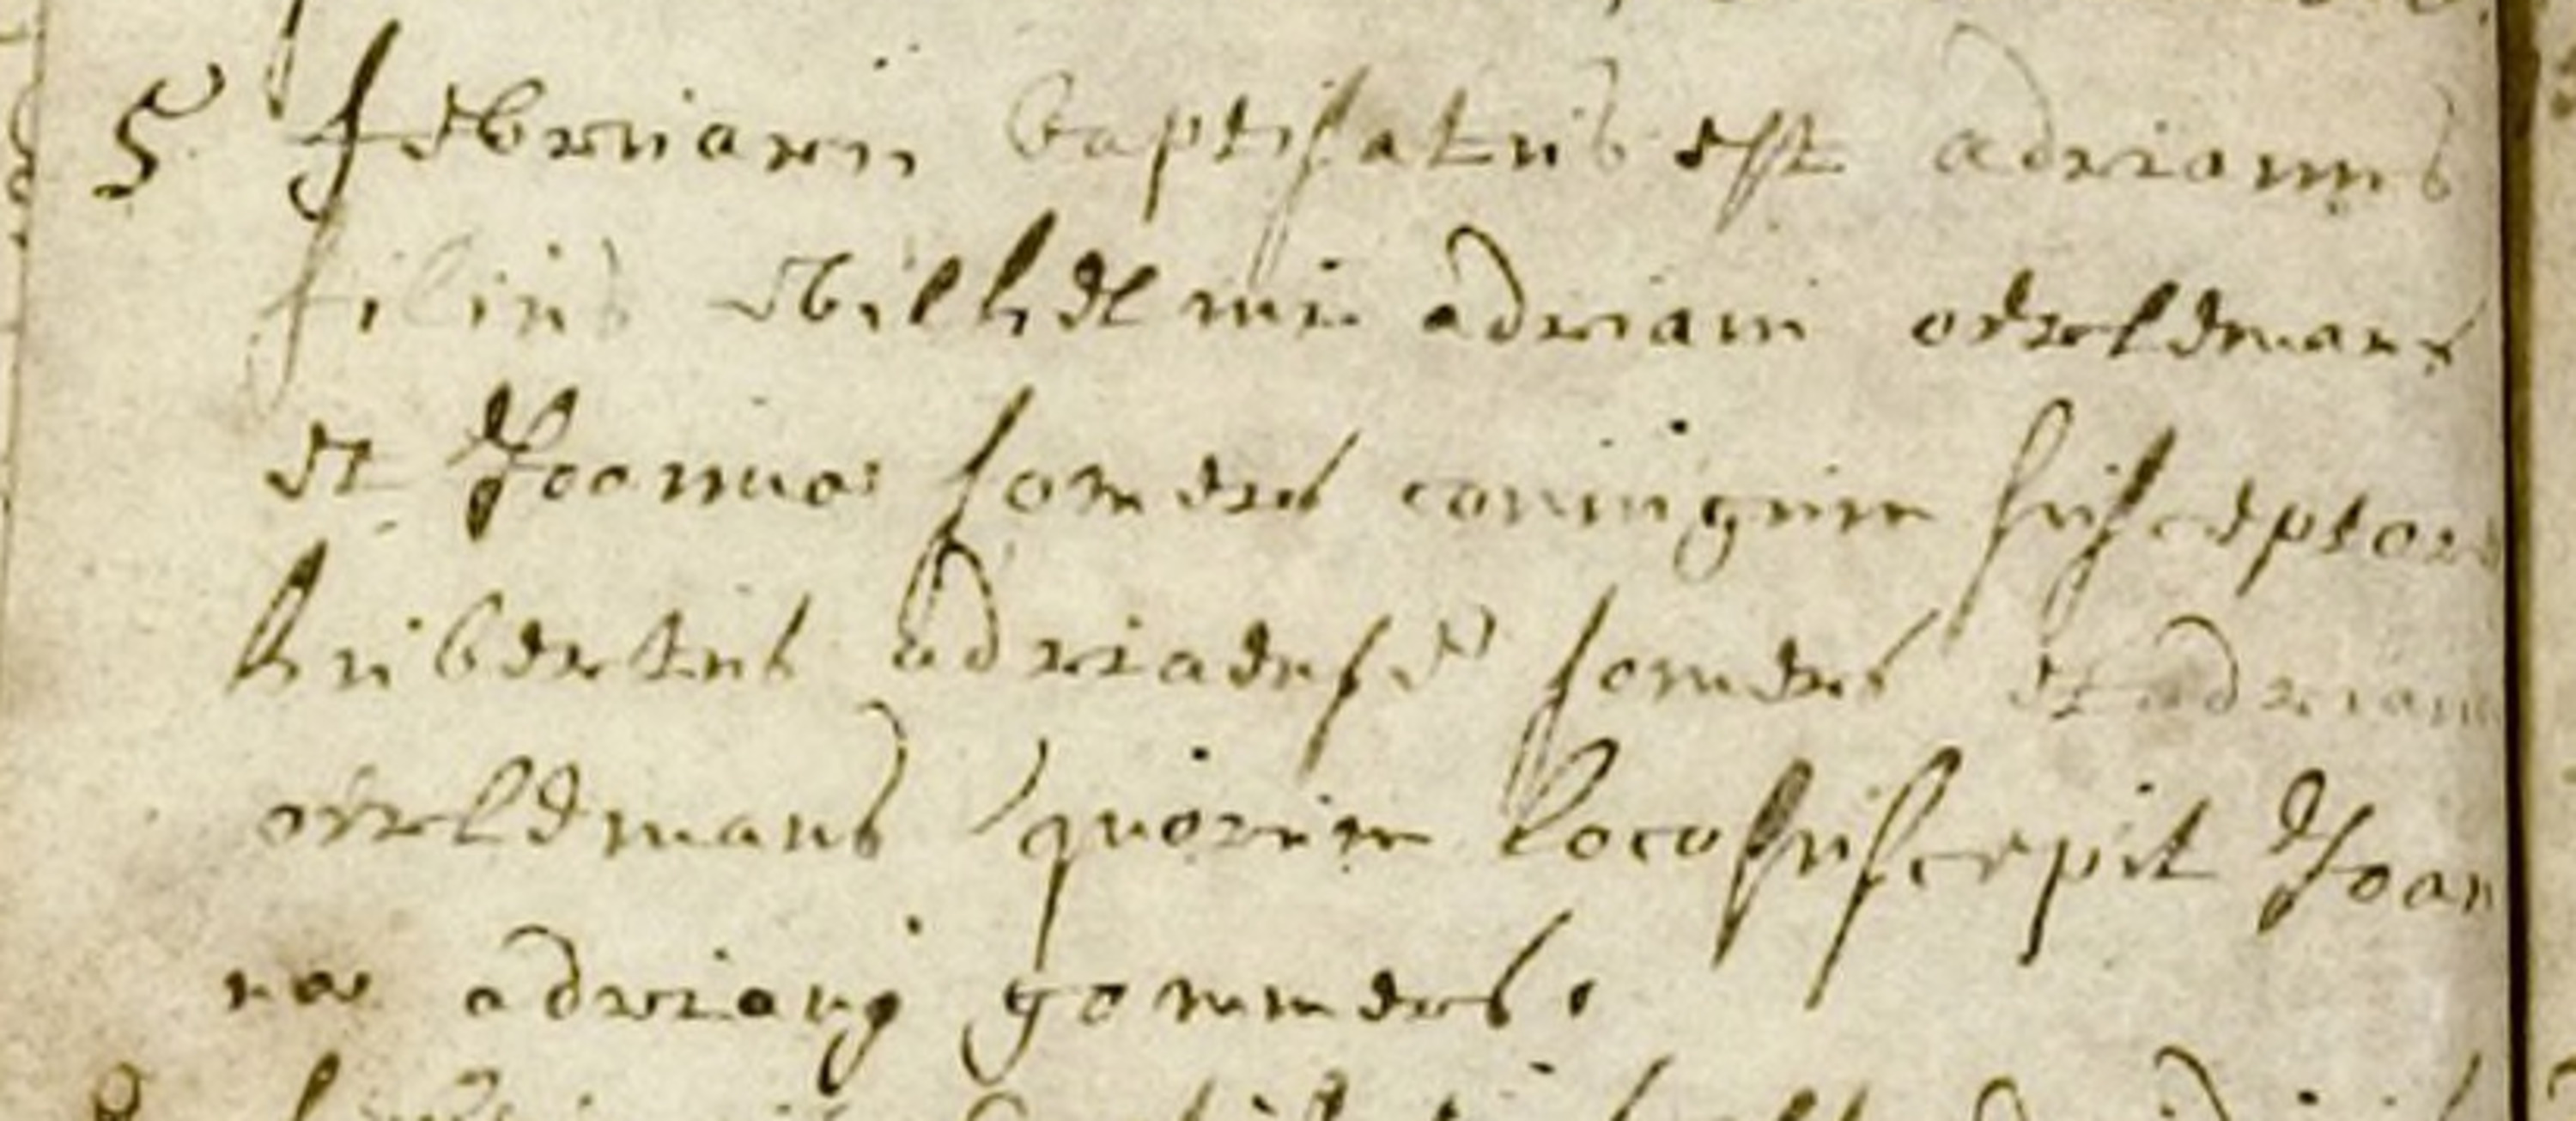 5 februarii baptisatus est adrianus
filius Wilhelmi adriani oerlemans
et Joannae somers coniugum susceptores
hubertus adriaensen somers et adriana
oerlemans quorum loco suscepit Joan
na adriani gommers.